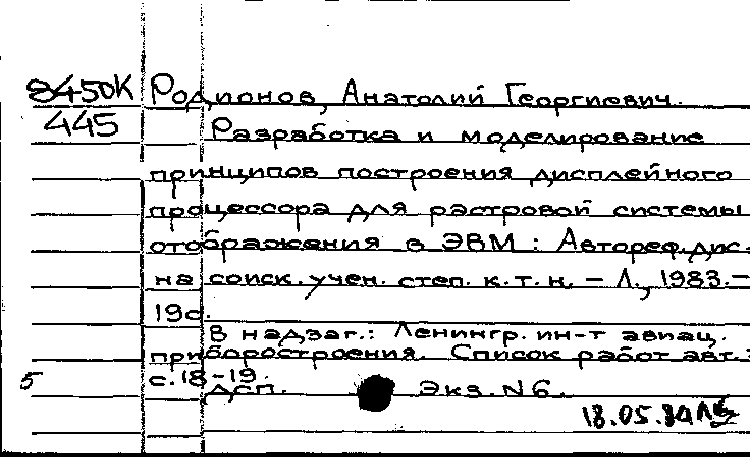 8450К Родионов, Анатолий Георгиевич.
445 Разработка и моделирование
принципов построения дисплейного
процессора для растровой системы
отображения в ЭВМ : Автореф. дис.
на соиск. учен. степ. к.т.н. – Л., 1983.–
19с.
В надзаг.: Ленингр. ин-т авиац.
приборостроения. Список работ авт.:
с.18-19.
5 ДСП. Экз. N6.
18.05.84